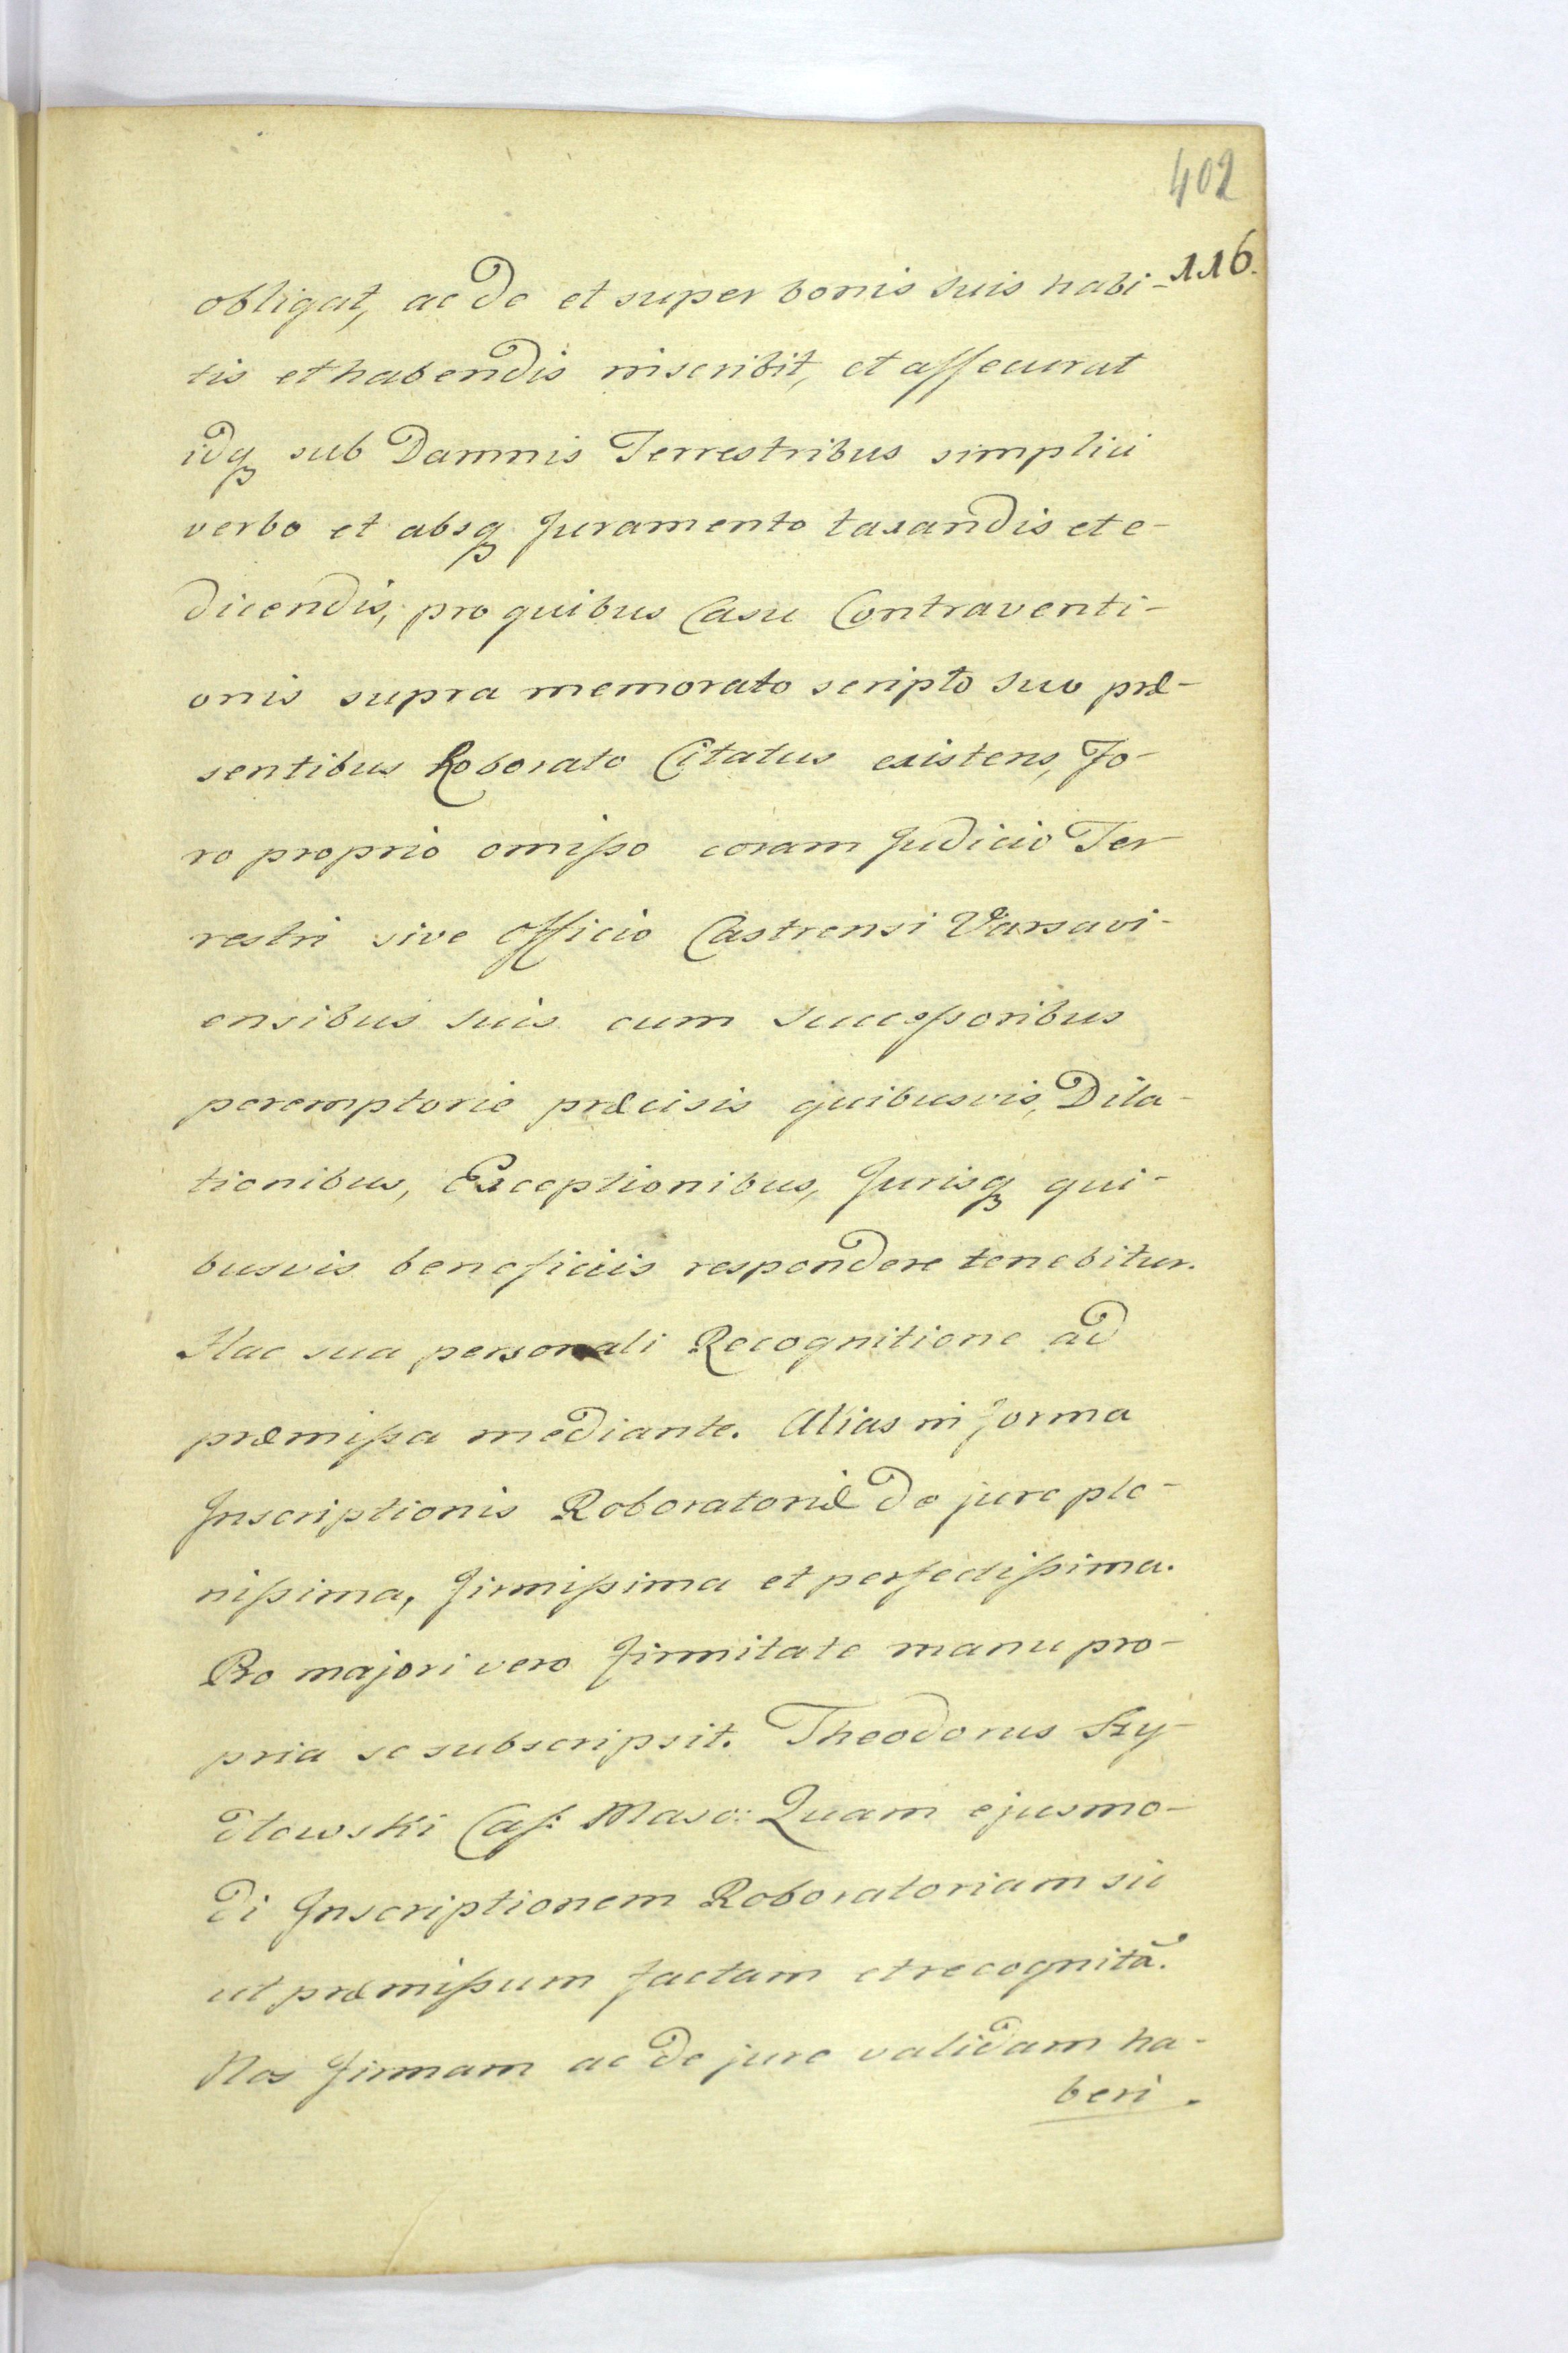 402
116.
obligat, ac de et super bonis suis habi-
tis et habendis inscribit, et assecurat
idq; sub Damnis Terrestribus simplici
verbo et absq; Juramento taxandis et e-
dicendis, pro quibus Casu Contraventi-
onis supra memorato scripto suo præ-
sentibus Roborato Citatus existens, Fo-
ro proprio omisso coram Judicio Ter
restri sive Officio Castrensi Varsavi-
ensibus suis cum successoribus
peremptorie præcisis quibusvis, Dila-
tionibus, Exceptionibus, Jurisq; qui-
busvis beneficiis respondere tenebitur.
Hac sua personali Recognitione ad
præmissa mediante. Alias in forma
Inscriptionis Roboratoriæ de jure ple-
nissima, firmissima et perfectissima.
Pro majori vero firmitate manu pro-
pria se subscripsit. Theodorus Szy-
dłowski Cas: Maso: Quam ejusmo-
di Inscriptionem Roboratoriam sic
ut præmissum factam et recognitã.
Nos firmam ac de jure validam ha-
beri.